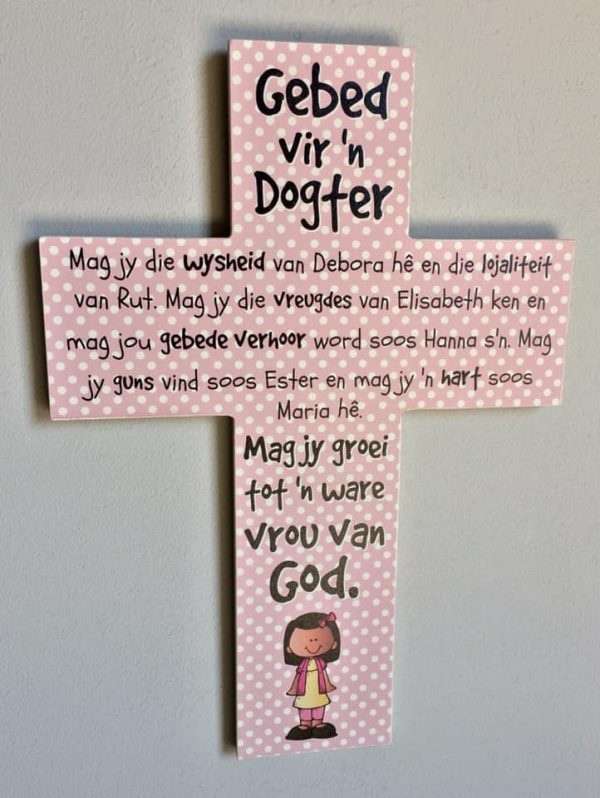 Gebed
vir 'n
Dogter
Mag jy die wysheid van Debora hê en die lojaliteit
van Rut. Mag jy die vreugdes van Elisabeth ken en
mag jou gebede verhoor word soos Hanna s'n. Mag
jy guns vind soos Ester en mag jy 'n hart soos
Maria hê.
Mag jy groei
tot 'n ware
vrou van
God.